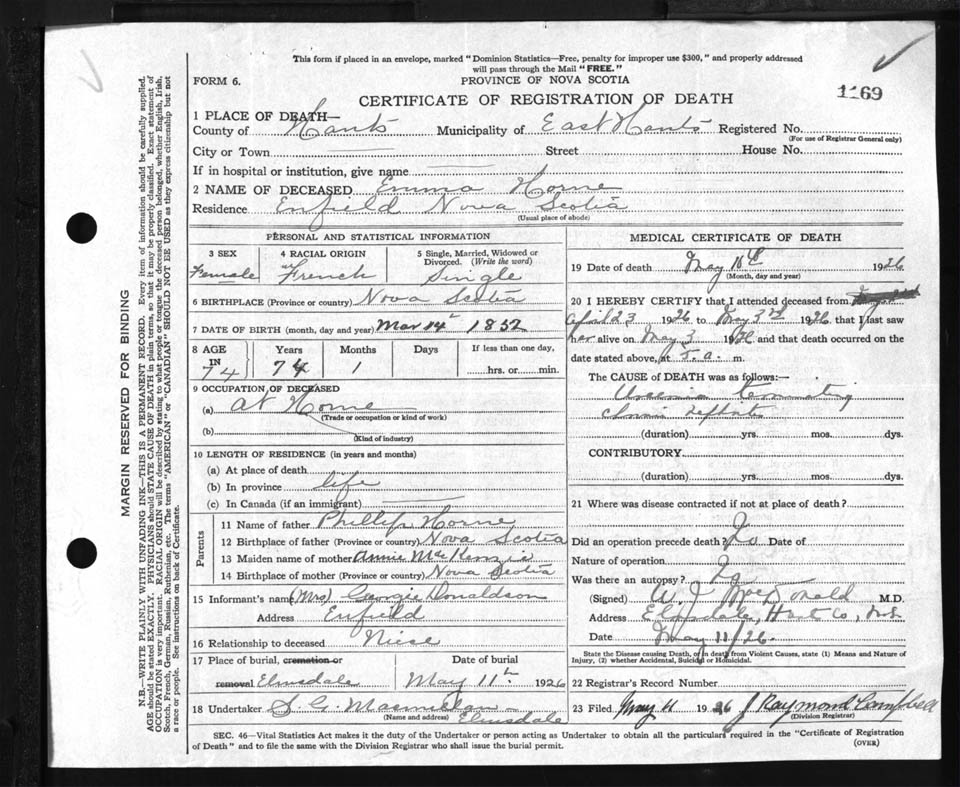 This form if placed in an envelope, marked "Dominion Statistics—Free, penalty for improper use $300," and properly addressed
will pass through the Mail "FREE."
FORM 6.
PROVINCE OF NOVA SCOTIA
1169
CERTIFICATE OF REGISTRATION OF DEATH
1 PLACE OF DEATH—
County of Hants Municipality of East Hants Registered No.
(For use of Registrar General only)
City or Town Street House No.
If in hospital or institution, give name
2 NAME OF DECEASED Emma Horne
Residence Enfield Nova Scotia
(Usual place of abode)
PERSONAL AND STATISTICAL INFORMATION
3 SEX
Female
4 RACIAL ORIGIN
French
5 Single, Married, Widowed or
Divorced. (Write the word)
Single
6 BIRTHPLACE (Province or country) Nova Scotia
7 DATE OF BIRTH (month, day and year) Mar 14th 1852
8 AGE Years Months Days If less than one day,
IN
74 74 1 hrs. or min.
9 OCCUPATION OF DECEASED
(a) At Home
(Trade or occupation or kind of work)
(b)
(Kind of industry)
10 LENGTH OF RESIDENCE (in years and months)
(a) At place of death
(b) In province life
(c) In Canada (if an immigrant)
Parents
11 Name of father Phillip Horne
12 Birthplace of father (Province or country) Nova Scotia
13 Maiden name of mother Annie MacKenzie
14 Birthplace of mother (Province or country) Nova Scotia
15 Informant's name (Mrs) Georgie Donaldson
Address Enfield
16 Relationship to deceased Niese
17 Place of burial, cremation or Date of burial
removal Elmsdale May 11th 1926
18 Undertaker S. G. Macmillan
(Name and address) Elmsdale
MEDICAL CERTIFICATE OF DEATH
19 Date of death May 1926
(Month, day and year)
20 I HEREBY CERTIFY that I attended deceased from
April 23 1926 to May 3rd 1926, that I last saw
her alive on May 3 1926 and that death occurred on the
date stated above, at 5. a. m.
The CAUSE of DEATH was as follows:—
Uraemia terminating
chronic
(duration) yrs. mos. dys.
CONTRIBUTORY
(duration) yrs. mos. dys.
21 Where was disease contracted if not at place of death?
Did an operation precede death? No Date of
Nature of operation
Was there an autopsy? No
(Signed) MacDonald M.D.
Address Elmsdale, Hants Co, N.S.
Date May 11/26
State the Disease causing Death, or in death from Violent Causes, state (1) Means and Nature of
Injury, (2) whether Accidental, Suicidal or Homicidal.
22 Registrar's Record Number
23 Filed May 11 1926 J Raymond Campbell
(Division Registrar)
SEC. 46—Vital Statistics Act makes it the duty of the Undertaker or person acting as Undertaker to obtain all the particulars required in the "Certificate of Registration
of Death" and to file the same with the Division Registrar who shall issue the burial permit.
(OVER)
MARGIN RESERVED FOR BINDING
N.B.—WRITE PLAINLY WITH UNFADING INK—THIS IS A PERMANENT RECORD. Every item of information should be carefully supplied.
AGE should be stated EXACTLY. PHYSICIANS should STATE CAUSE OF DEATH in plain terms, so that it may be properly classified. Exact statement of
OCCUPATION is very important. RACIAL ORIGIN will be described by stating to what people or tongue the deceased person belonged, whether English, Irish,
Scotch, French, German, Russian, Ruthenian, etc. The terms "AMERICAN" or "CANADIAN" SHOULD NOT BE USED as they express citizenship but not
a race or people. See instructions on back of Certificate.